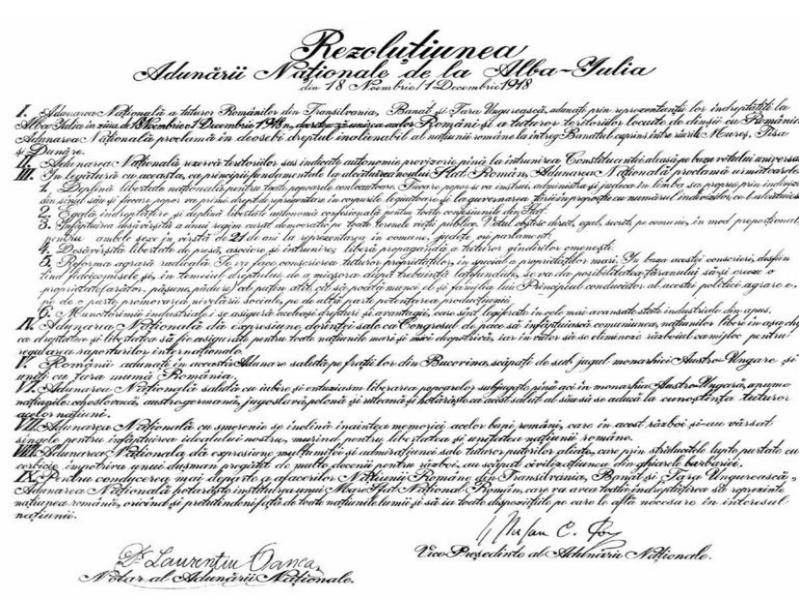 Rezoluțiunea
Adunării Naționale de la Alba-Iulia
din 18 Noembrie/1 Decembrie 1918
I. Adunarea Națională a tuturor Românilor din Transilvania, Banat și Țara Ungurească, adunați prin reprezentanții lor îndreptățiți la
Alba-Iulia în ziua de 18 Noembrie/1 Decembrie 1918, decretează unirea acelor Români și a tuturor teritoriilor locuite de dînșii cu România.
Adunarea Națională proclamă în deosebi dreptul inalienabil al națiunii române la întreg Banatul cuprins între rîurile Mureș, Tisa
și Dunăre.
II. Adunarea Națională rezervă teritoriilor sus indicate autonomie provizorie pînă la întrunirea Constituantei aleasă pe baza votului universal.
III. În legătură cu aceasta, ca principii fundamentale la alcătuirea noului Stat Român, Adunarea Națională proclamă următoarele:
1. Deplină libertate națională pentru toate popoarele conlocuitoare. Fiecare popor se va instrui, administra și judeca în limba sa proprie prin indivizi
din sînul său și fiecare popor va primi drept de reprezentare în corpurile legiuitoare și la guvernarea țării în proporție cu numărul indivizilor ce-l alcătuiesc.
2. Egală îndreptățire și deplină libertate autonomă confesională pentru toate confesiunile din Stat.
3. Înfăptuirea desăvîrșită a unui regim curat democratic pe toate terenele vieții publice. Votul obștesc direct, egal, secret, pe comune, în mod proporțional,
pentru ambele sexe în vîrstă de 21 de ani la reprezentarea în comune, județe ori parlament.
4. Desăvîrșită libertate de presă, asociere și întrunire; liberă propagandă a tuturor gîndurilor omenești.
5. Reforma agrară radicală. Se va face conscrierea tuturor proprietăților, în special a proprietăților mari. În baza acestei conscrieri, desființînd
fideicomisele și, în temeiul dreptului de a micșora după trebuință latifundiile, se va da posibilitatea țăranului să-și creeze o
proprietate (arător, pășune, pădure) cel puțin atît cît să poată munci el și familia lui. Principiul conducător al acestei politici agrare e
pe de o parte promovarea nivelării sociale, pe de altă parte potențarea producțiunii.
6. Muncitorimii industriale i se asigură aceleași drepturi și avantagii, care sînt legiferate în cele mai avansate state industriale din apus.
IV. Adunarea Națională dă expresiune dorinței sale ca Congresul de pace să înfăptuiască comuniunea națiunilor libere în așa chip
ca dreptatea și libertatea să fie asigurate pentru toate națiunile mari și mici deopotrivă, iar în viitor să se elimineze războiul ca mijloc pentru
regularea raporturilor internaționale.
V. Românii adunați în această Adunare salută pe frații lor din Bucovina, scăpați de sub jugul monarhiei Austro-Ungare și
uniți cu țara mumă România.
VI. Adunarea Națională salută cu iubire și entuziasm liberarea popoarelor subjugate pînă aci în monarhia Austro-Ungară, anume
națiunile: cehoslovacă, austrogermană, jugoslavă, polonă și ruteană și hotărăște ca acest salut al său să se aducă la cunoștința tuturor
acelor națiuni.
VII. Adunarea Națională cu smerenie se înclină înaintea memoriei acelor bravi români, care în acest război și-au vărsat
sîngele pentru înfăptuirea idealului nostru, murind pentru libertatea și unitatea națiunii române.
VIII. Adunarea Națională dă expresiune mulțumitei și admirațiunei sale tuturor puterilor aliate, care prin strălucitele lupte purtate cu
cerbicie împotriva unui dușman pregătit de multe decenii pentru război, au scăpat civilizațiunea din ghiarele barbariei.
IX. Pentru conducerea mai departe a afacerilor Națiunii Române din Transilvania, Banat și Țara Ungurească,
Adunarea Națională hotărăște instituirea unui Mare Sfat Național Român, care va avea toată îndreptățirea să reprezinte
națiunea română, oricînd și pretutindeni față de toate națiunile lumii și să ia toate dispozițiile pe care le află necesare în interesul
națiunii.
Dr Laurențiu Oanea
Notar al Adunării Naționale.
Vice Președinte al Adunării Naționale.